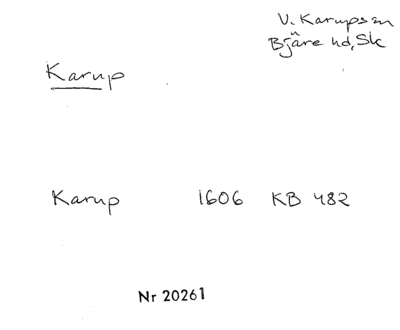 V. Karups sn
Bjäre hd, Sk
Karup
Karup 1606 KB 482
Nr 20261